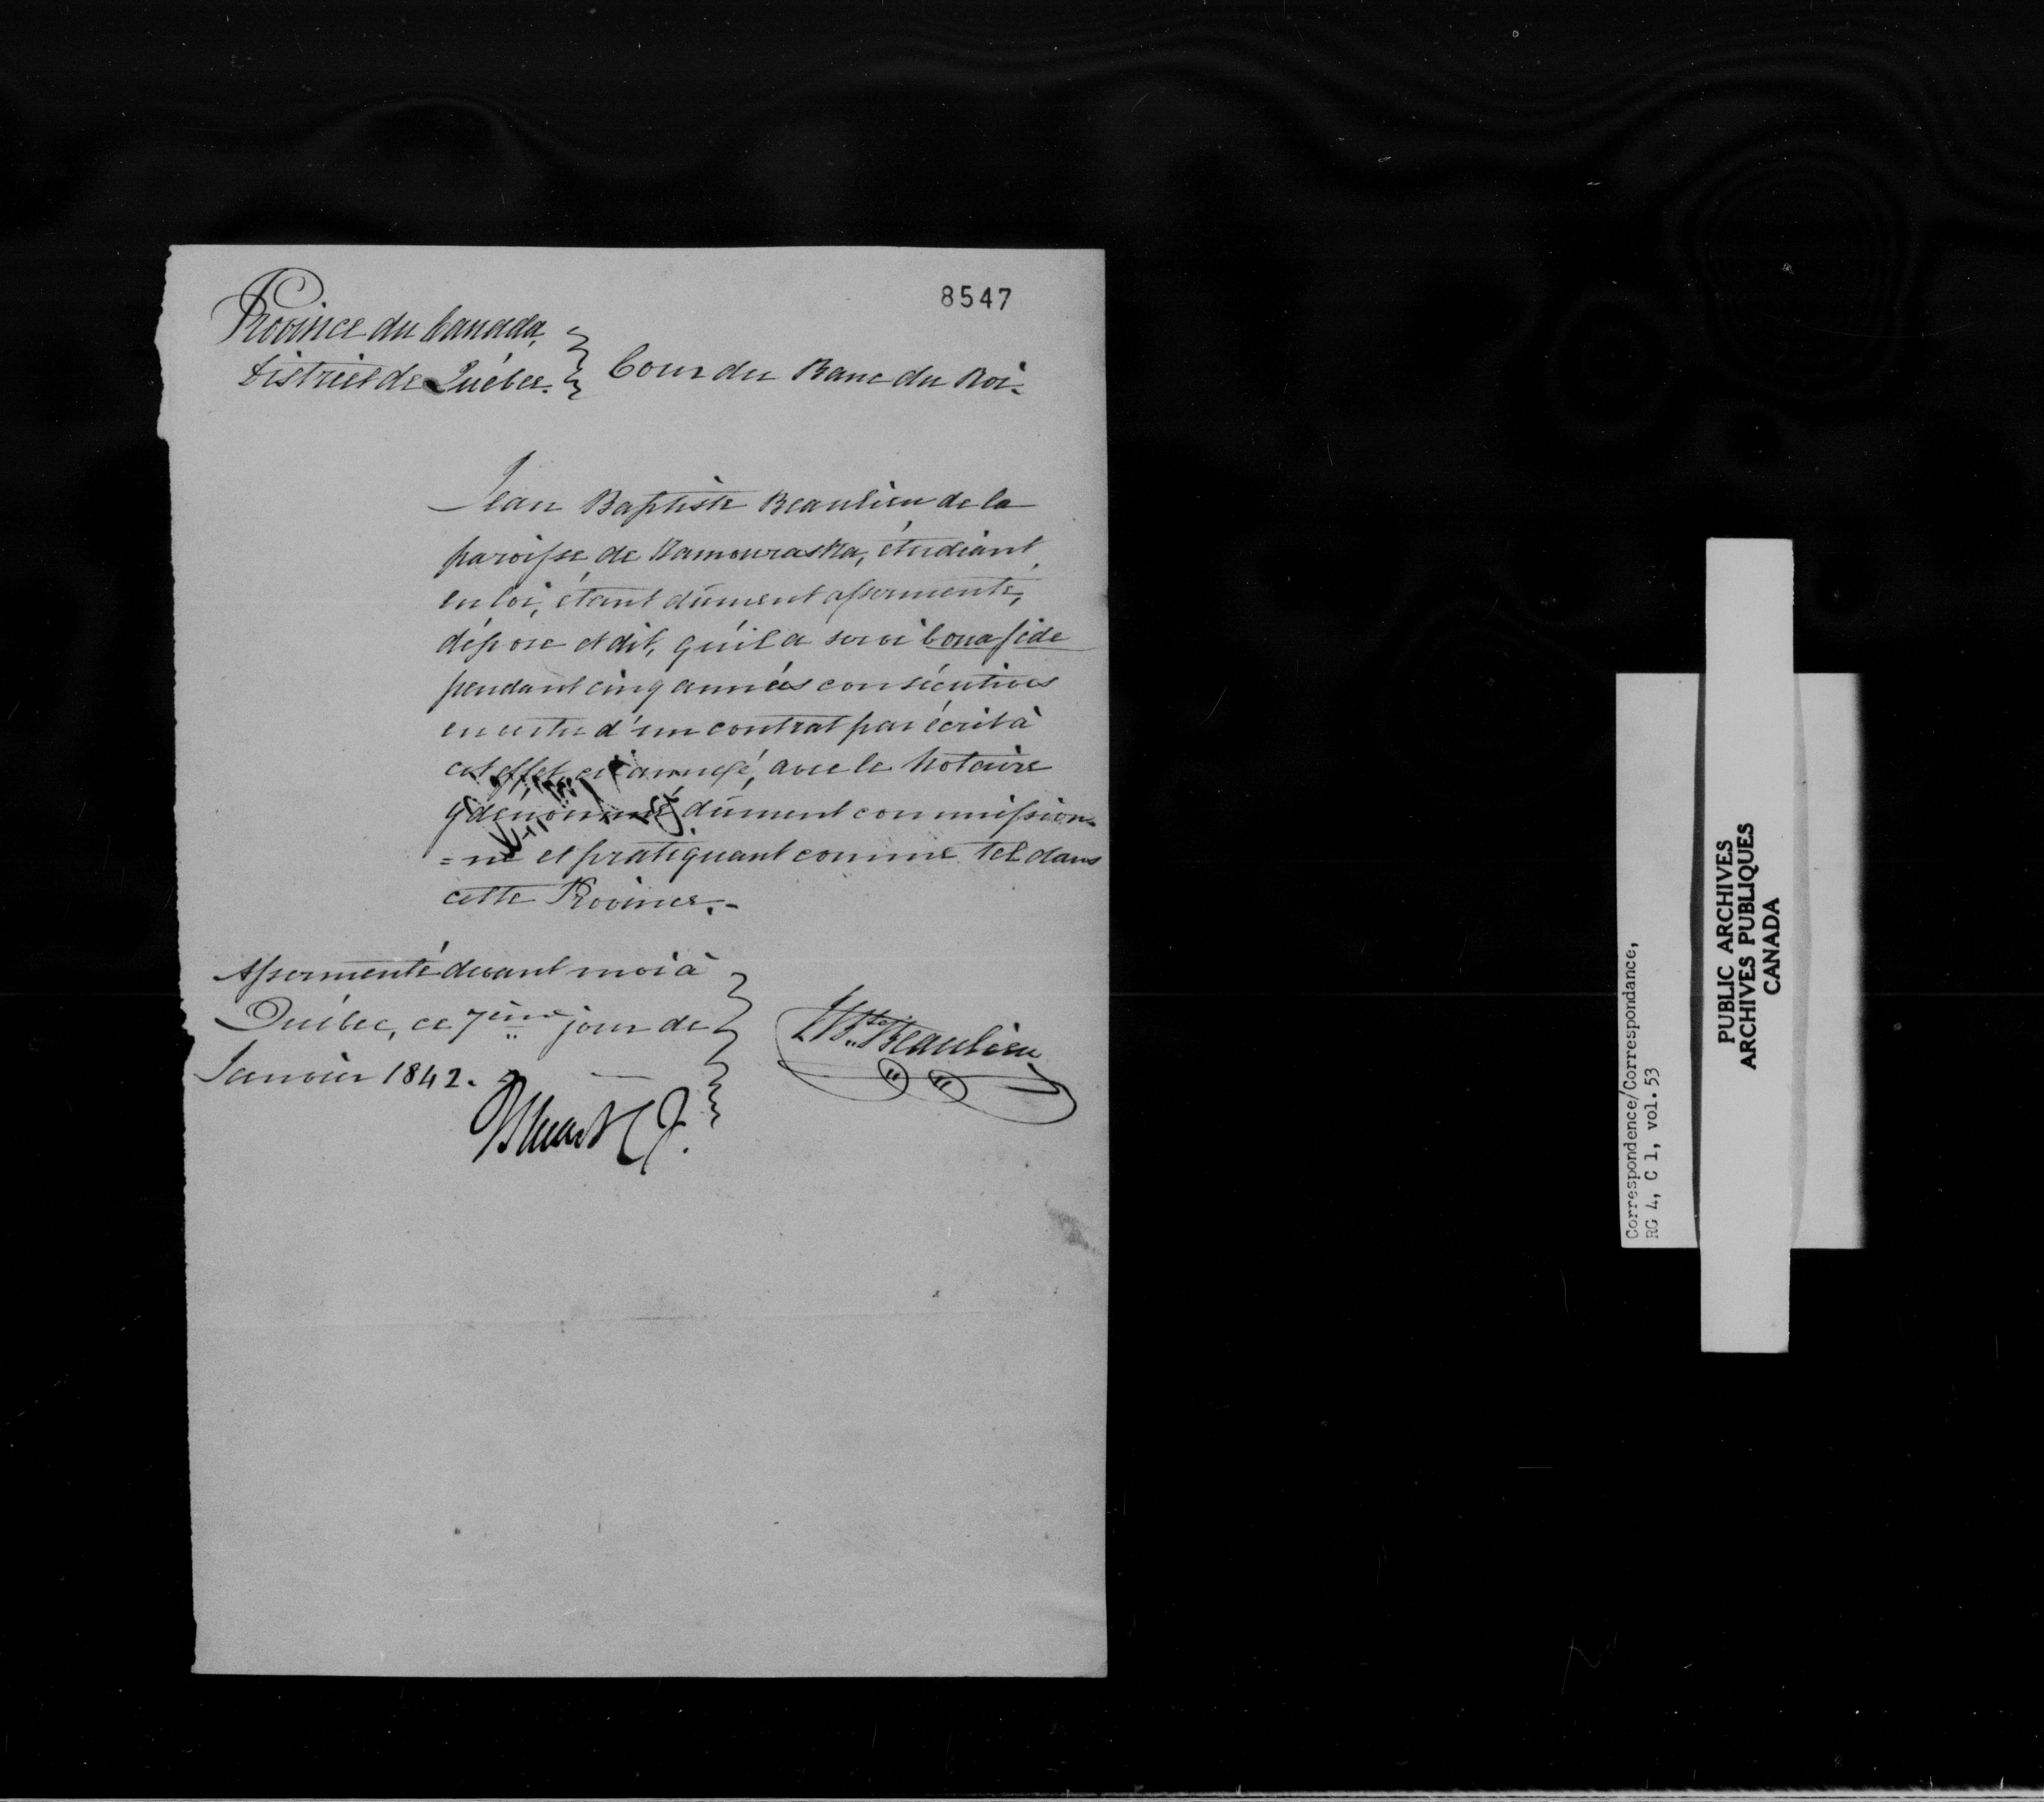 8547
Province du Canada,
District de Québec.
Cour du Banc du Roi.
Jean Baptiste Beaulieu de la
paroisse de Kamouraska, étudiant
en loi, étant dûment assermenté,
dépose et dit, qu'il a servi bonafide
pendant cinq années consécutives
en vertu d'un contrat par écrit à
cet effet ci annexé, avec le Notaire
y dénommé dûment commission-
=né et pratiquant comme tel dans
cette Province.-
Assermenté devant moi à
Québec, ce 7ème jour de
Janvier 1842.
JBte Beaulieu
Stuart CJ.
Correspondence/Correspondance,
RG 4, C 1, vol. 53
PUBLIC ARCHIVES
ARCHIVES PUBLIQUES
CANADA